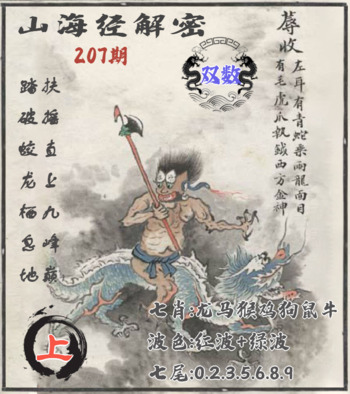 山海经解密
207期
双数
蓐收
左耳有青蛇乘兩龍面目
有毛虎爪執鉞西方金神
扶摇直上九峰巅
踏破蛟龙栖息地
上
七肖:龙马猴鸡狗鼠牛
波色:红波+绿波
七尾:0.2.3.5.6.8.9